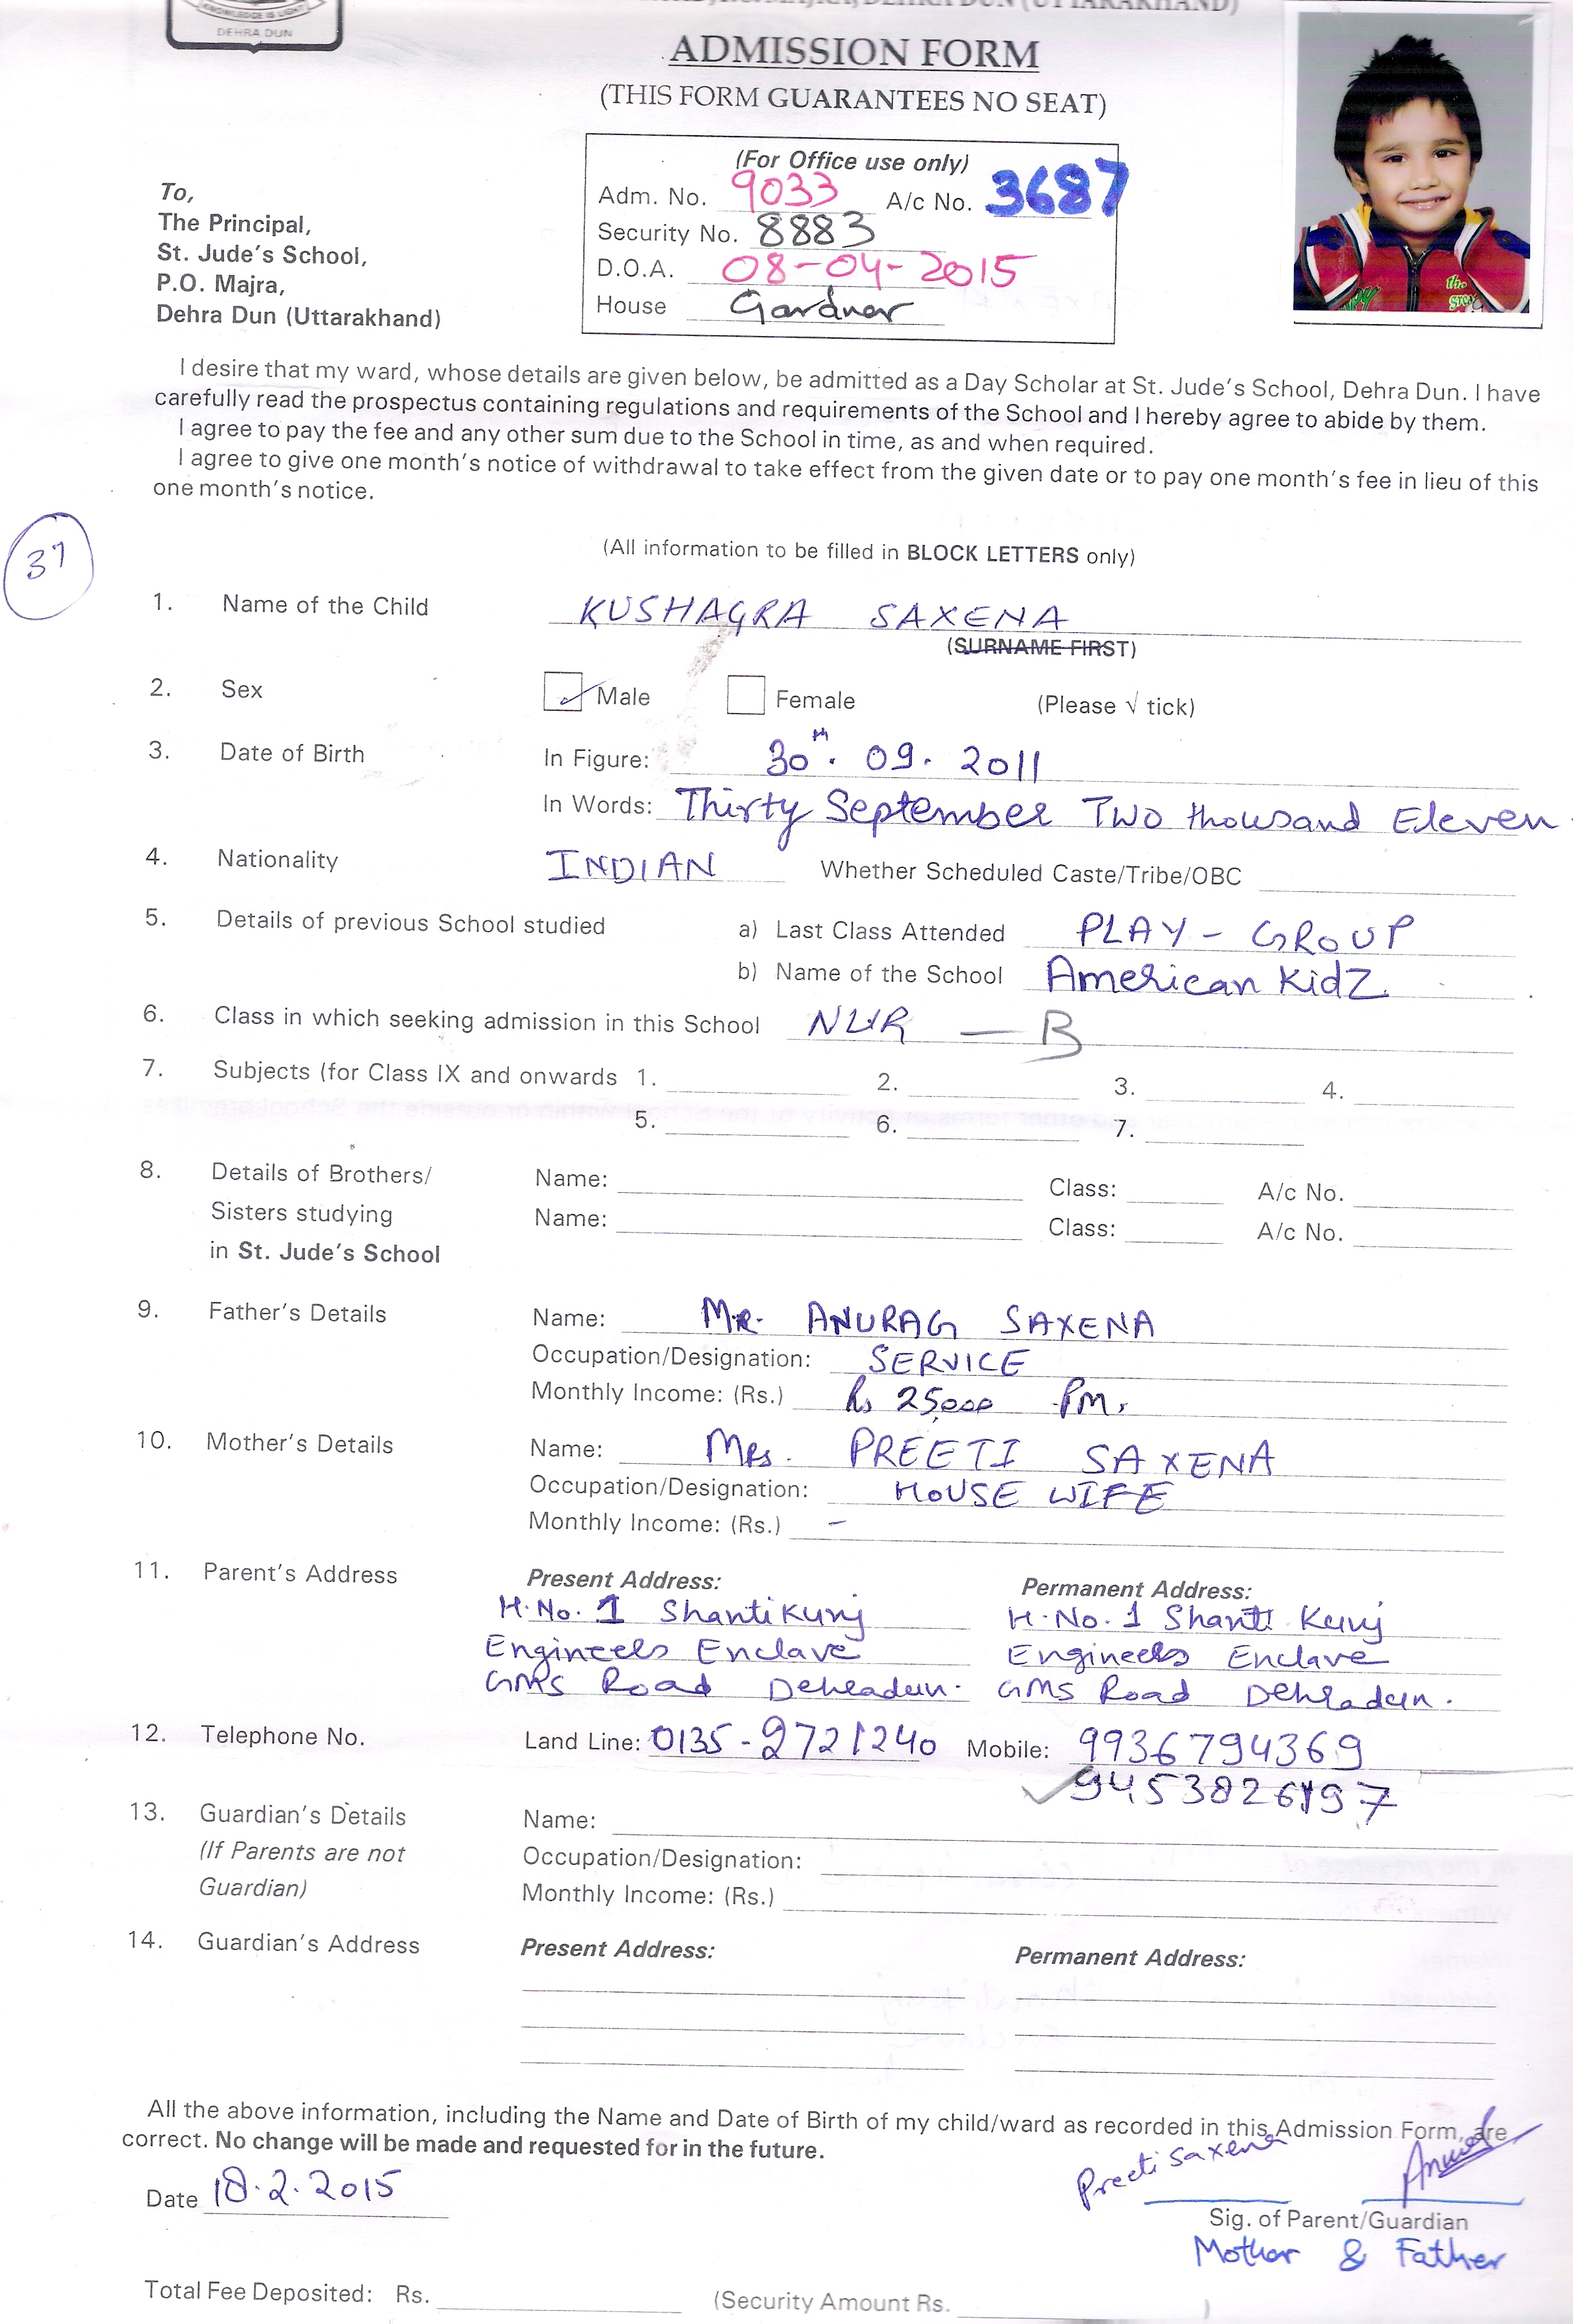 KNOWLEDGE IS LIGHT
DEHRA DUN
ADMISSION FORM
(THIS FORM GUARANTEES NO SEAT)
(For Office use only)
Adm. No. 9033 A/c No. 3687
Security No. 8883
D.O.A. 08-04-2015
House Gardner
To,
The Principal,
St. Jude's School,
P.O. Majra,
Dehra Dun (Uttarakhand)
I desire that my ward, whose details are given below, be admitted as a Day Scholar at St. Jude's School, Dehra Dun. I have
carefully read the prospectus containing regulations and requirements of the School and I hereby agree to abide by them.
I agree to pay the fee and any other sum due to the School in time, as and when required.
I agree to give one month's notice of withdrawal to take effect from the given date or to pay one month's fee in lieu of this
one month's notice.
37
(All information to be filled in BLOCK LETTERS only)
1. Name of the Child KUSHAGRA SAXENA
(SURNAME FIRST)
2. Sex Male Female (Please √ tick)
3. Date of Birth In Figure: 30th. 09. 2011
In Words: Thirty September Two thousand Eleven
4. Nationality INDIAN Whether Scheduled Caste/Tribe/OBC
5. Details of previous School studied a) Last Class Attended PLAY - GROUP
b) Name of the School American KidZ
6. Class in which seeking admission in this School NUR — B
7. Subjects (for Class IX and onwards 1. 2. 3. 4.
5. 6. 7.
8. Details of Brothers/ Name: Class: A/c No.
Sisters studying Name: Class: A/c No.
in St. Jude's School
9. Father's Details Name: MR. ANURAG SAXENA
Occupation/Designation: SERVICE
Monthly Income: (Rs.) Rs 25,000 Pm.
10. Mother's Details Name: MRs. PREETI SAXENA
Occupation/Designation: HOUSE WIFE
Monthly Income: (Rs.) -
11. Parent's Address Present Address: Permanent Address:
H.No. 1 Shanti Kunj H.No. 1 Shanti Kunj
Engineers Enclave Engineers Enclave
GMS Road Dehradun. GMS Road Dehradun.
12. Telephone No. Land Line: 0135-2721240 Mobile: 9936794369
9453826197
13. Guardian's Details Name:
(If Parents are not Occupation/Designation:
Guardian) Monthly Income: (Rs.)
14. Guardian's Address Present Address: Permanent Address:
All the above information, including the Name and Date of Birth of my child/ward as recorded in this Admission Form, are
correct. No change will be made and requested for in the future.
Preeti Saxena
Date 18.2.2015
Sig. of Parent/Guardian
Mother & Father
Total Fee Deposited: Rs. (Security Amount Rs. )